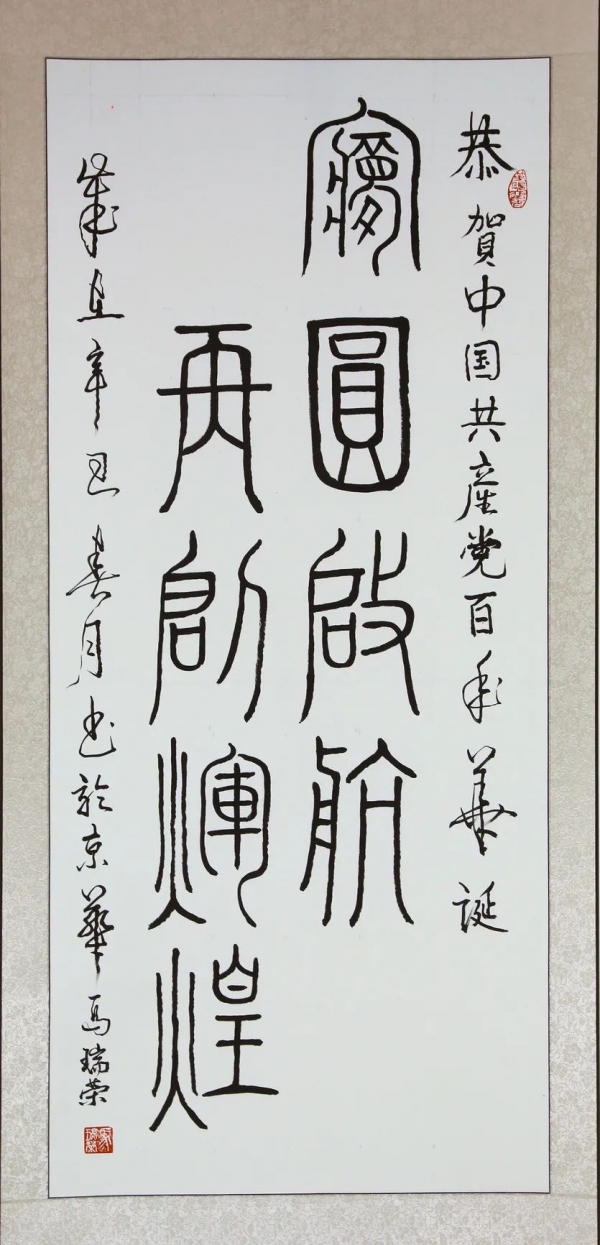 恭贺中国共産党百年華誕
夢圓啟航
再創輝煌
歲在辛丑春月书於京華馬瑞荣